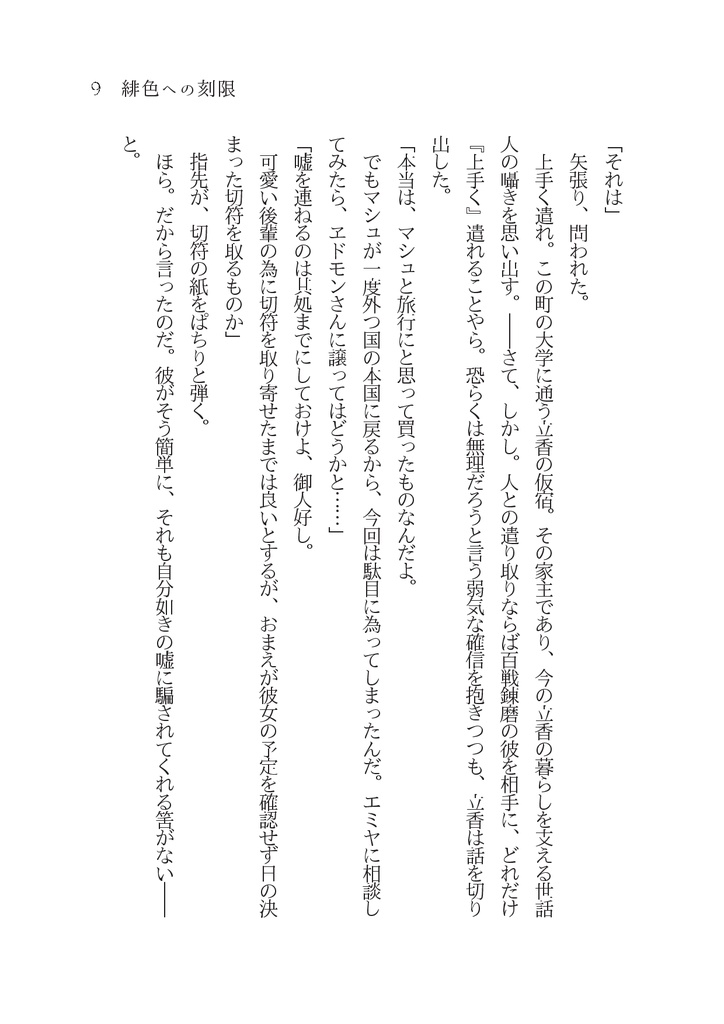 9　緋色への刻限
「それは」
　矢張り、問われた。
　上手く遣れ。この町の大学に通う立香の仮宿。その家主であり、今の立香の暮らしを支える世話
人の囁きを思い出す。――さて、しかし。人との遣り取りならば百戦錬磨の彼を相手に、どれだけ
『上手く』遣れることやら。恐らくは無理だろうと言う弱気な確信を抱きつつも、立香は話を切り
出した。
「本当は、マシュと旅行にと思って買ったものなんだよ。
　でもマシュが一度外つ国の本国に戻るから、今回は駄目に為ってしまったんだ。エミヤに相談し
てみたら、ヱドモンさんに譲ってはどうかと……」
「嘘を連ねるのは其処までにしておけよ、御人好し。
　可愛い後輩の為に切符を取り寄せたまでは良いとするが、おまえが彼女の予定を確認せず日の決
まった切符を取るものか」
　指先が、切符の紙をぱちりと弾く。
　ほら。だから言ったのだ。彼がそう簡単に、それも自分如きの嘘に騙されてくれる筈がない――
と。